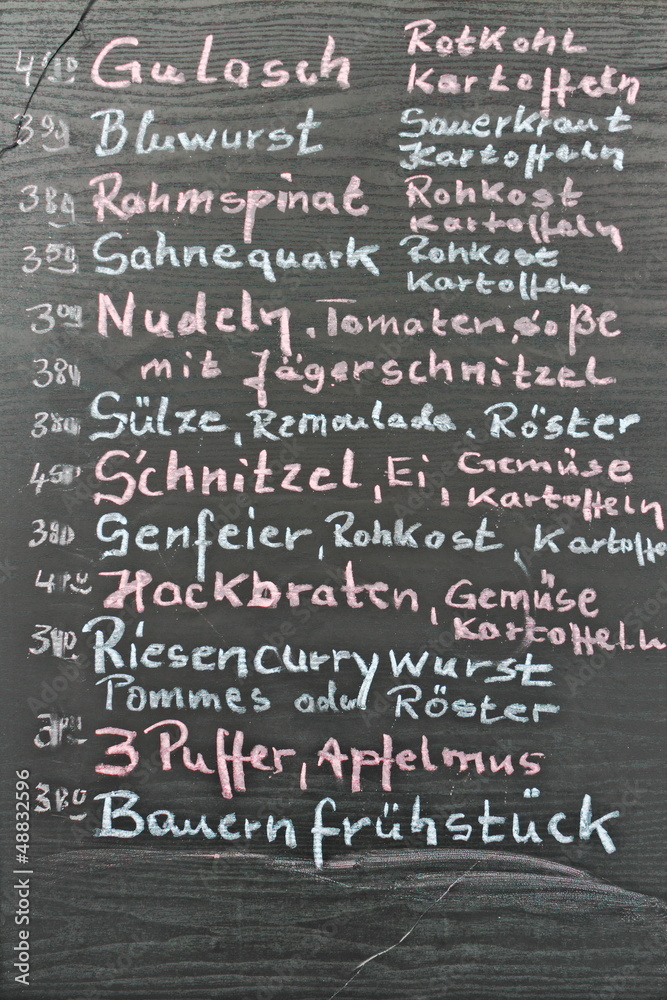 Gulasch Rotkohl
Kartoffeln
Bluwurst Sauerkraut
Kartoffeln
380 Rahmspinat Rohkost
Kartoffeln
350 Sahnequark Rohkost
Kartoffeln
300 Nudeln, Tomatensoße
380 mit Jägerschnitzel
380 Sülze, Remoulade, Röster
450 Schnitzel, Ei, Gemüse
Kartoffeln
380 Senfeier, Rohkost, Kartoffe
Hackbraten, Gemüse
Kartoffeln
Riesencurrywurst
Pommes oder Röster
3 Puffer, Apfelmus
380 Bauernfrühstück
48832596
Adobe Stock